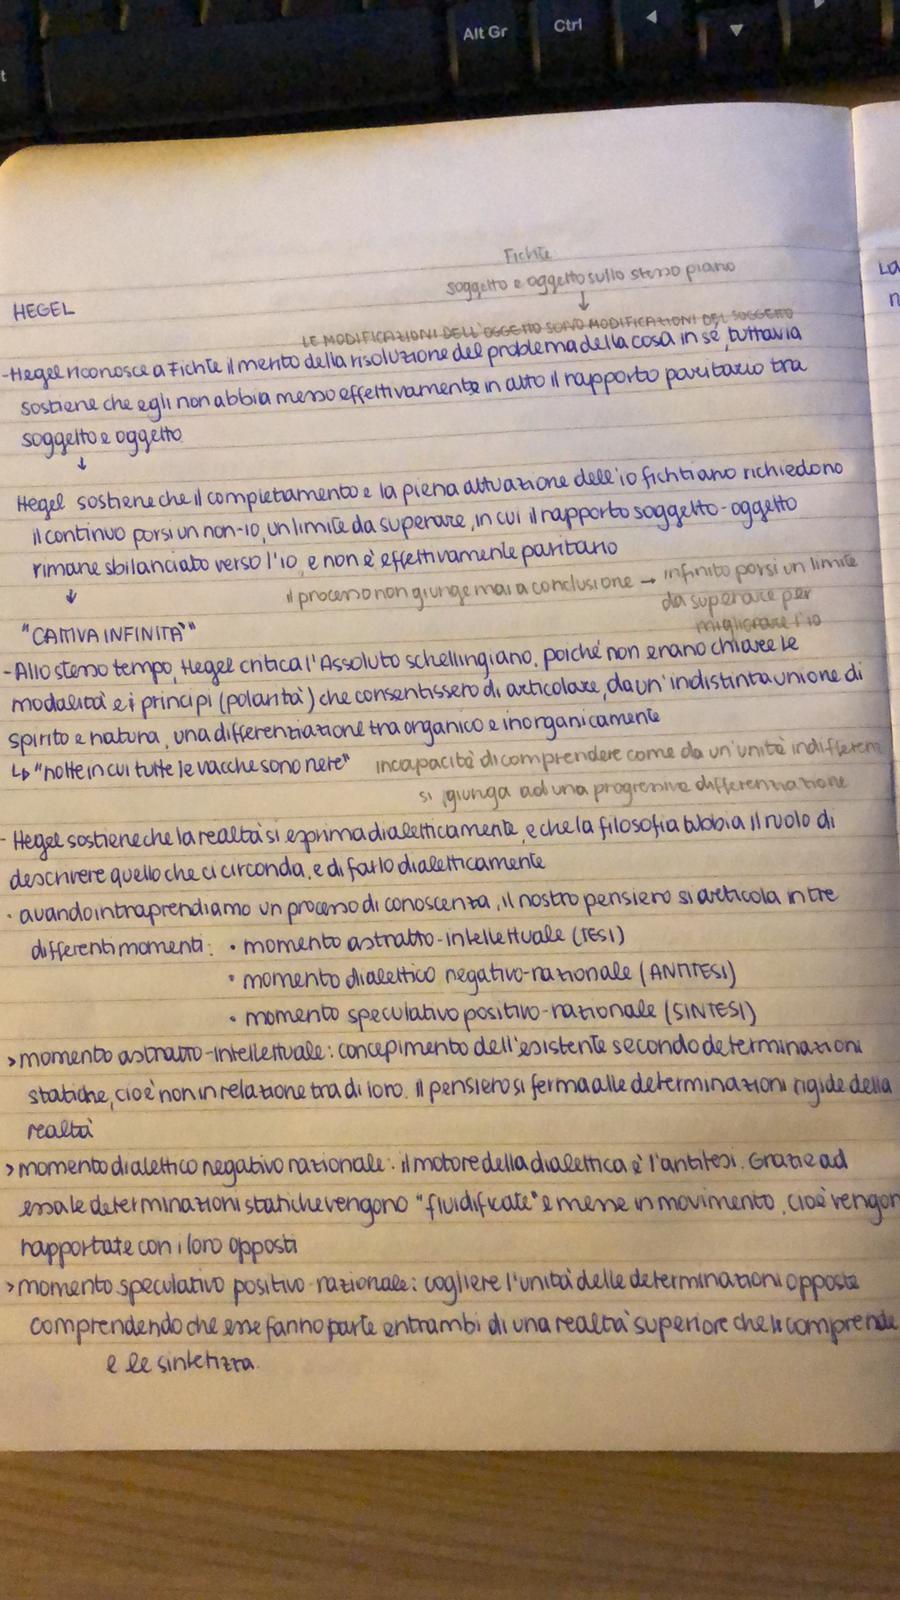 Alt Gr
Ctrl
t
Fichte
soggetto e oggetto sullo stesso piano
↓
HEGEL
LE MODIFICAZIONI DELL'OGGETTO SONO MODIFICAZIONI DEL SOGGETTO
-Hegel riconosce a Fichte il merito della risoluzione del problema della cosa in sé, tuttavia
sostiene che egli non abbia messo effettivamente in atto il rapporto paritario tra
soggetto e oggetto
↓
Hegel sostiene che il completamento e la piena attuazione dell'io fichtiano richiedono
il continuo porsi un non-io, un limite da superare, in cui il rapporto soggetto-oggetto
rimane sbilanciato verso l'io, e non è effettivamente paritario
↓
il processo non giunge mai a conclusione → infinito porsi un limite
da superare per
migliorare l'io
"CATTIVA INFINITÀ"
-Allo stesso tempo, Hegel critica l'Assoluto schellingiano, poiché non erano chiare le
modalità e i principi (polarità) che consentissero di articolare, da un'indistinta unione di
spirito e natura, una differenziazione tra organico e inorganicamente
↳ "notte in cui tutte le vacche sono nere" incapacità di comprendere come da un'unità indifferen
si giunga ad una progressiva differenziazione
- Hegel sostiene che la realtà si esprima dialetticamente, e che la filosofia abbia il ruolo di
descrivere quello che ci circonda, e di farlo dialetticamente
· quando intraprendiamo un processo di conoscenza, il nostro pensiero si articola in tre
differenti momenti: • momento astratto-intellettuale (TESI)
• momento dialettico negativo-razionale (ANTITESI)
• momento speculativo positivo-razionale (SINTESI)
>momento astratto-intellettuale: concepimento dell'esistente secondo determinazioni
statiche, cioè non in relazione tra di loro. Il pensiero si ferma alle determinazioni rigide della
realtà
>momento dialettico negativo razionale: il motore della dialettica è l'antitesi. Grazie ad
essa le determinazioni statiche vengono "fluidificate" e messe in movimento, cioè vengon
rapportate con i loro opposti
>momento speculativo positivo-razionale: cogliere l'unità delle determinazioni opposte
comprendendo che esse fanno parte entrambi di una realtà superiore che le comprende
e le sintetizza.